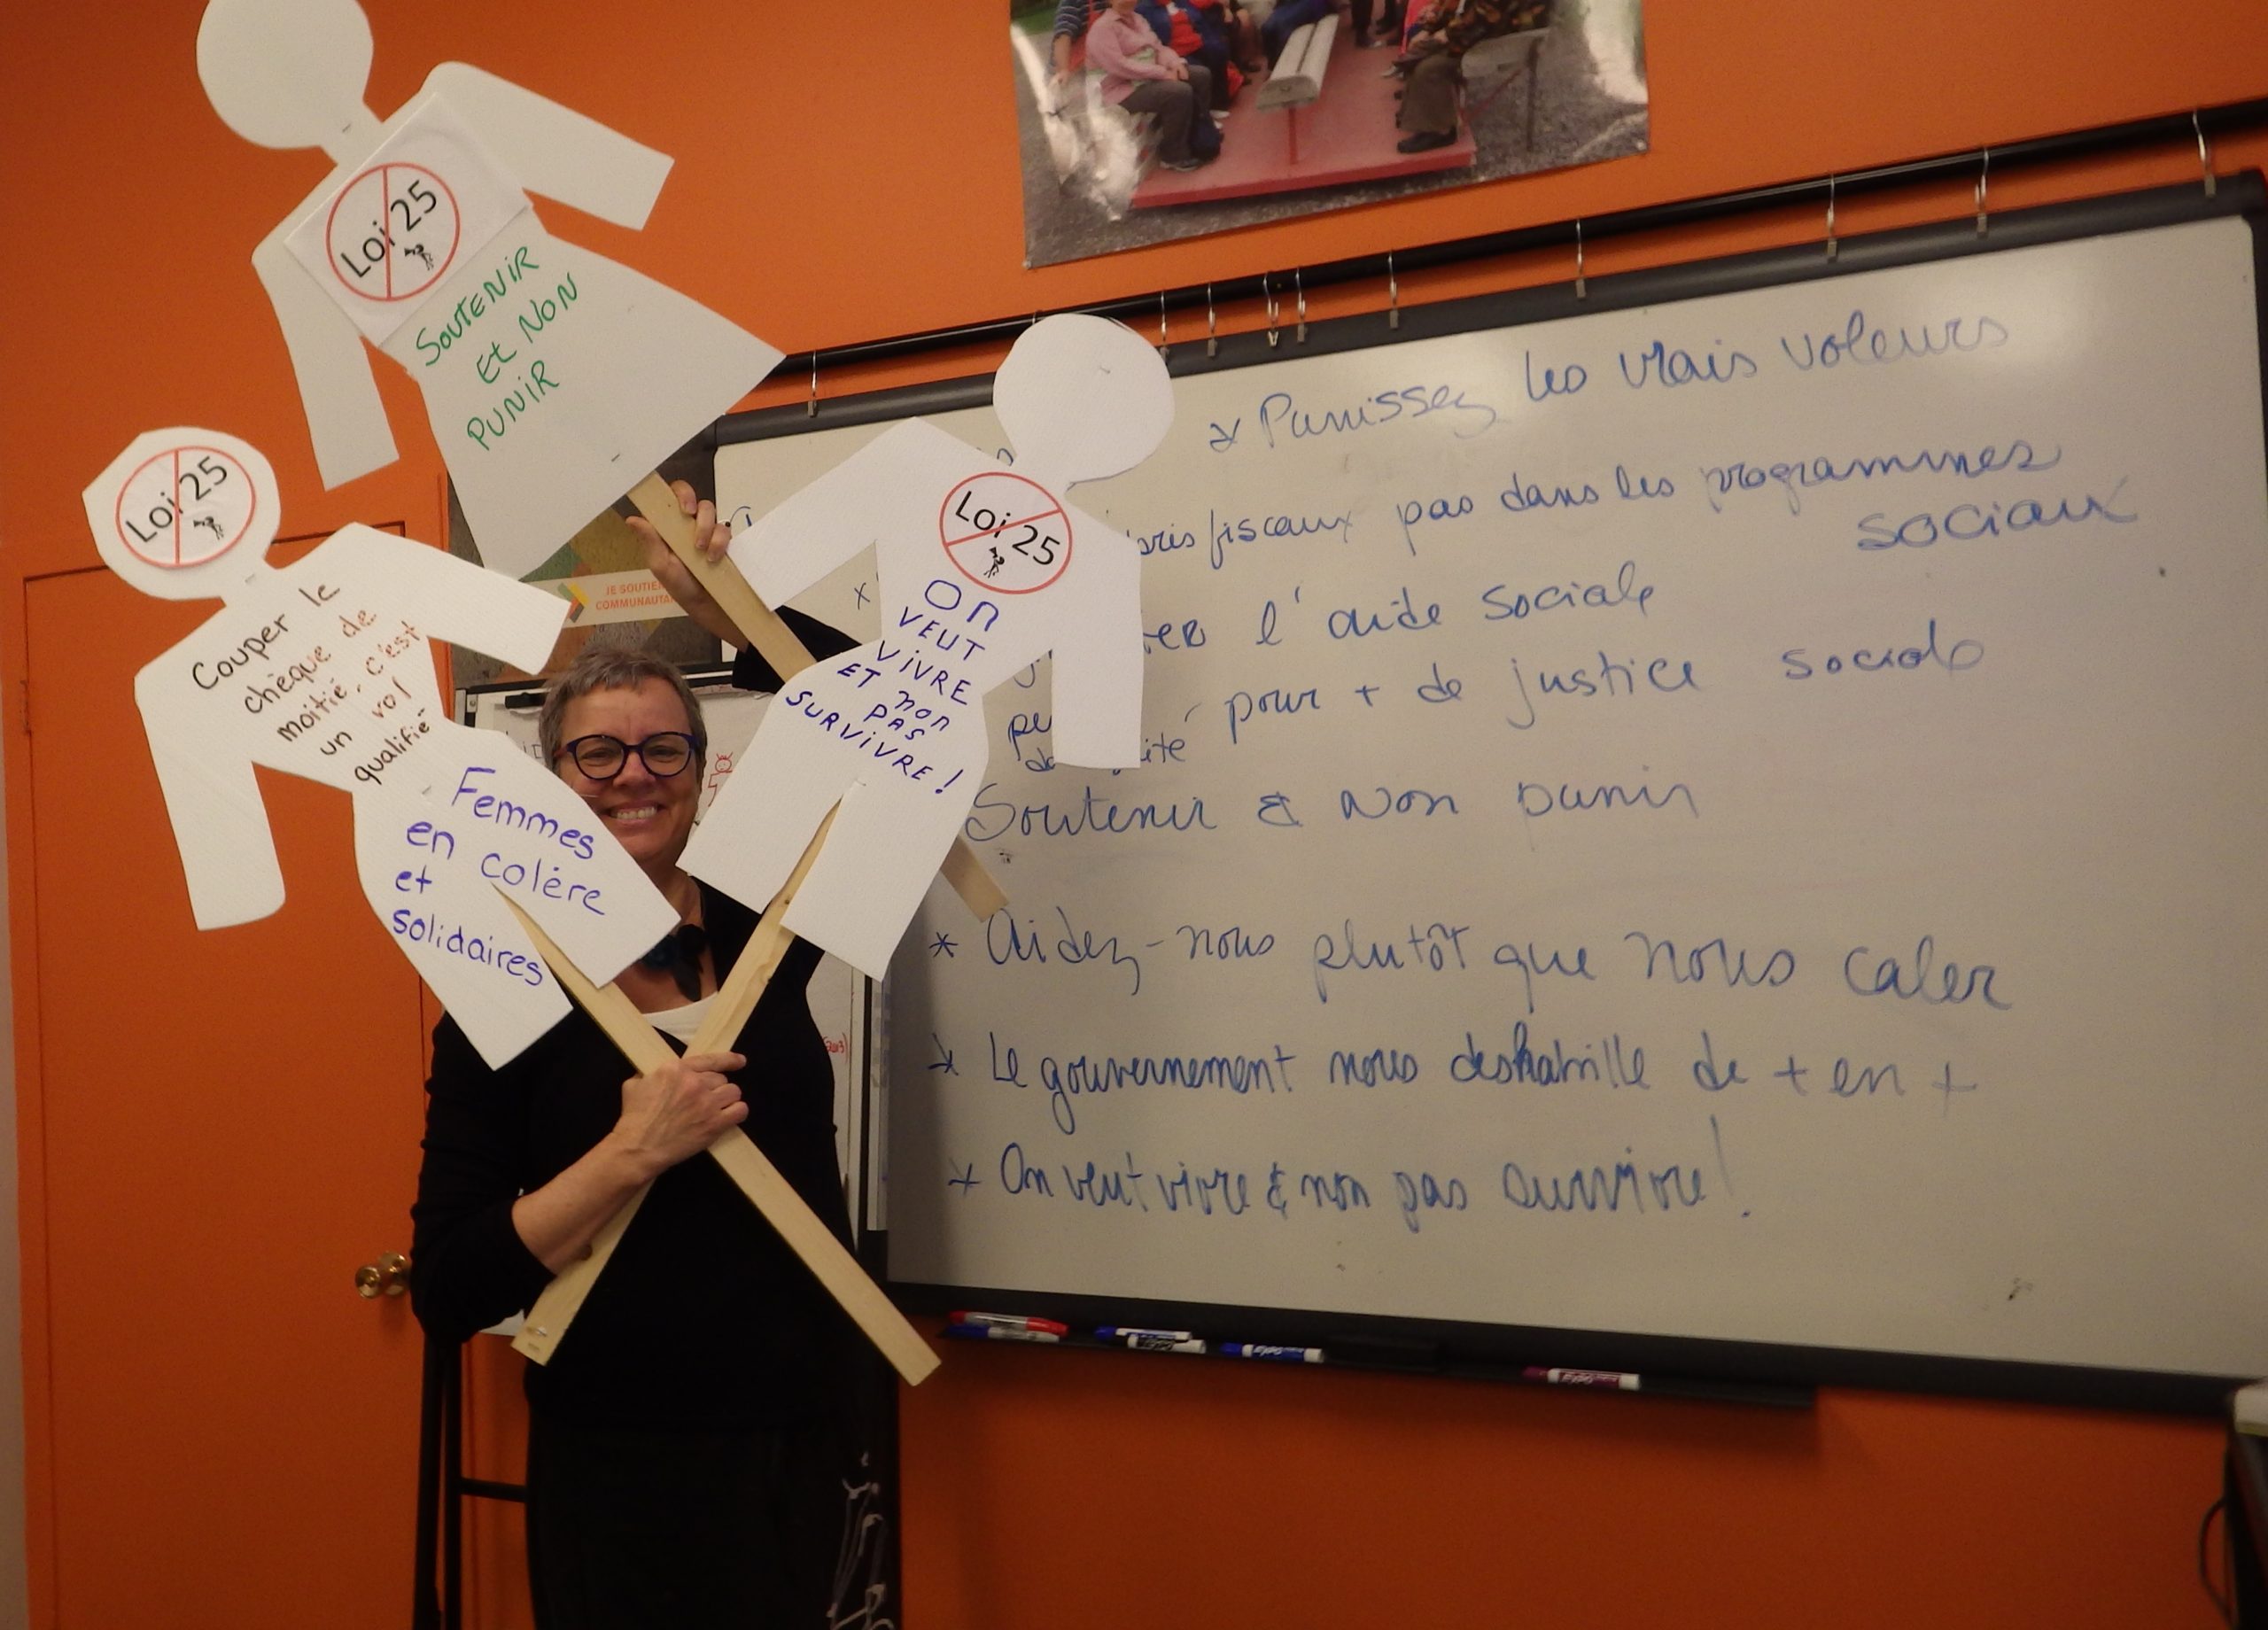 Loi 25
SOUTENIR
Et NON
PUNIR
Loi 25
Couper le
chèque de
moitié, c'est
un vol
qualifié
Femmes
en colère
et
solidaires
Loi 25
On
VEUT
VIVRE
ET non
PAS
SURVIVRE!
JE SOUTIE
COMMUNAUTA
* Punissez les vrais voleurs
fiscaux pas dans les programmes
sociaux
x
l'aide sociale
pour + de justice sociale
ité
Soutenir & Non punir
* Aidez-nous plutôt que nous caler
* Le gouvernement nous deshabille de + en +
* On veut vivre & non pas survivre!